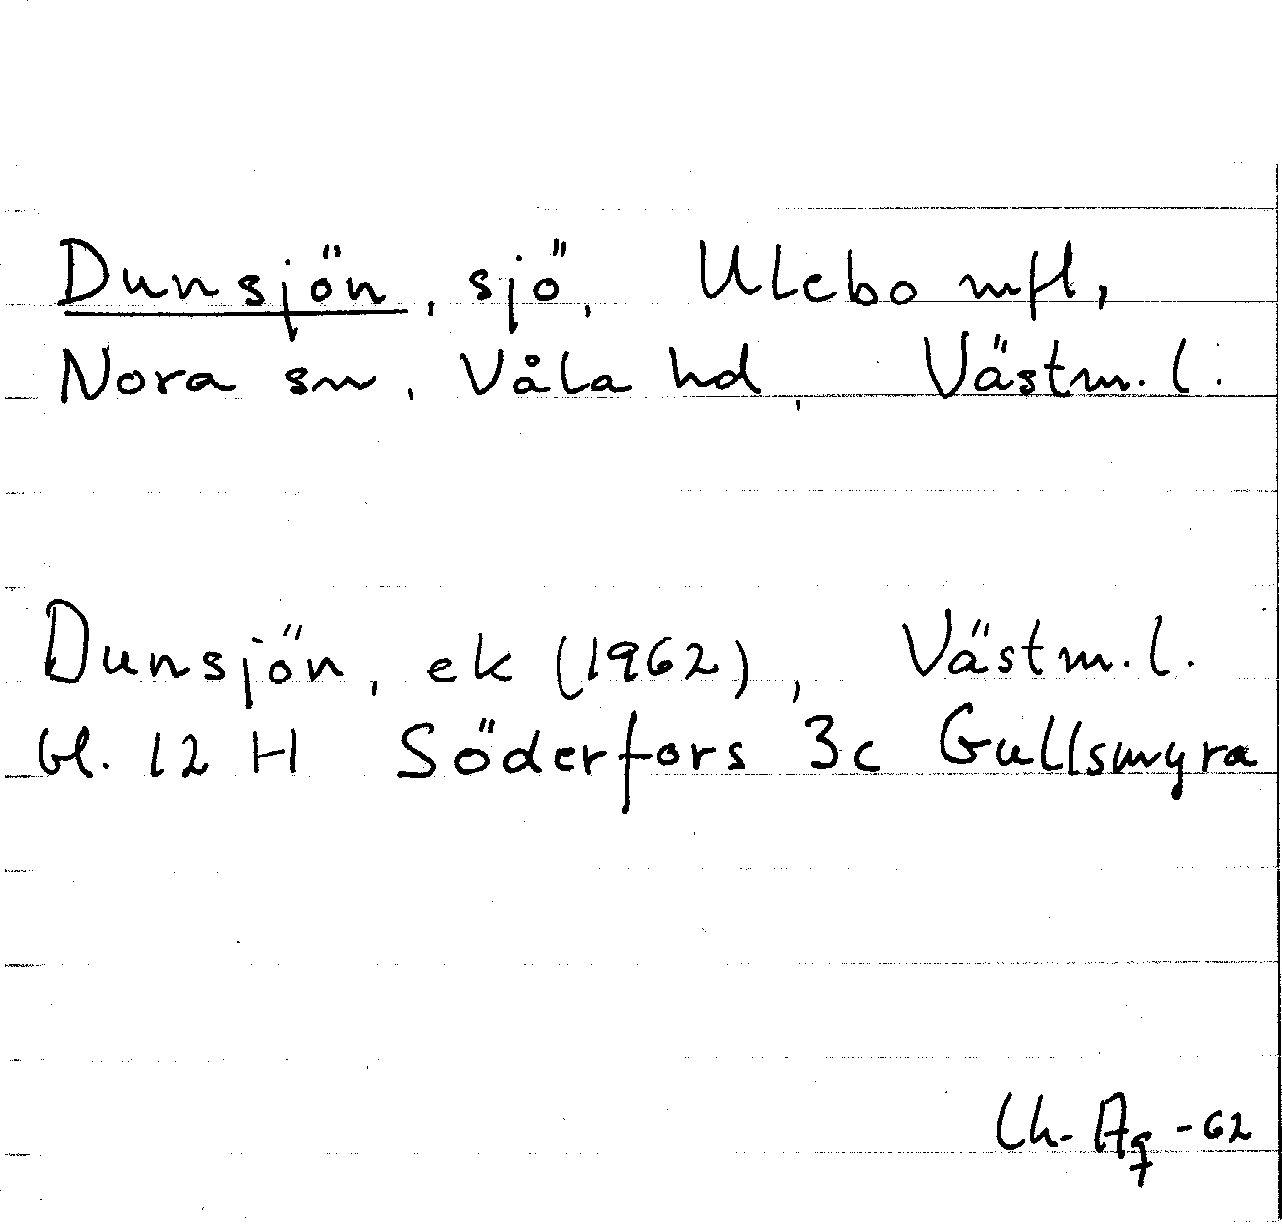 Dunsjön, sjö, Ulebo mfl,
Nora sn, Våla hd, Västm. l.
Dunsjön, ek (1962), Västm. l.
bl. 12 H Söderfors 3c Gullsmyra
-62